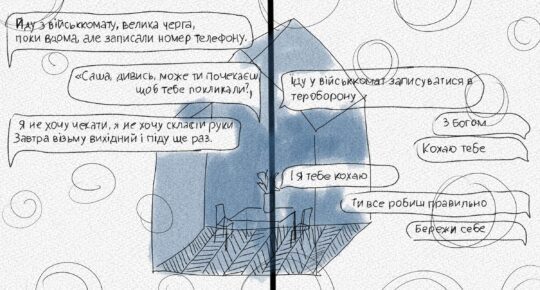 Йду з військкомату, велика черга,
поки вдома, але записали номер телефону.
«Саша, дивись, може ти почекаєш,
щоб тебе покликали?»
Я не хочу чекати, я не хочу скласти руки
Завтра візьму вихідний і піду ще раз.
Іду у військкомат записуватися в
тероборону
З Богом
Кохаю тебе
І я тебе кохаю
Ти все робиш правильно
Бережи себе